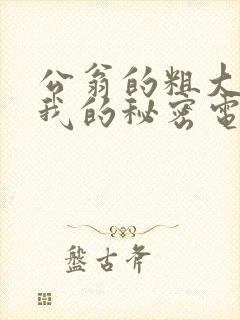 公翁的粗大
我的秘密電
盤古斧